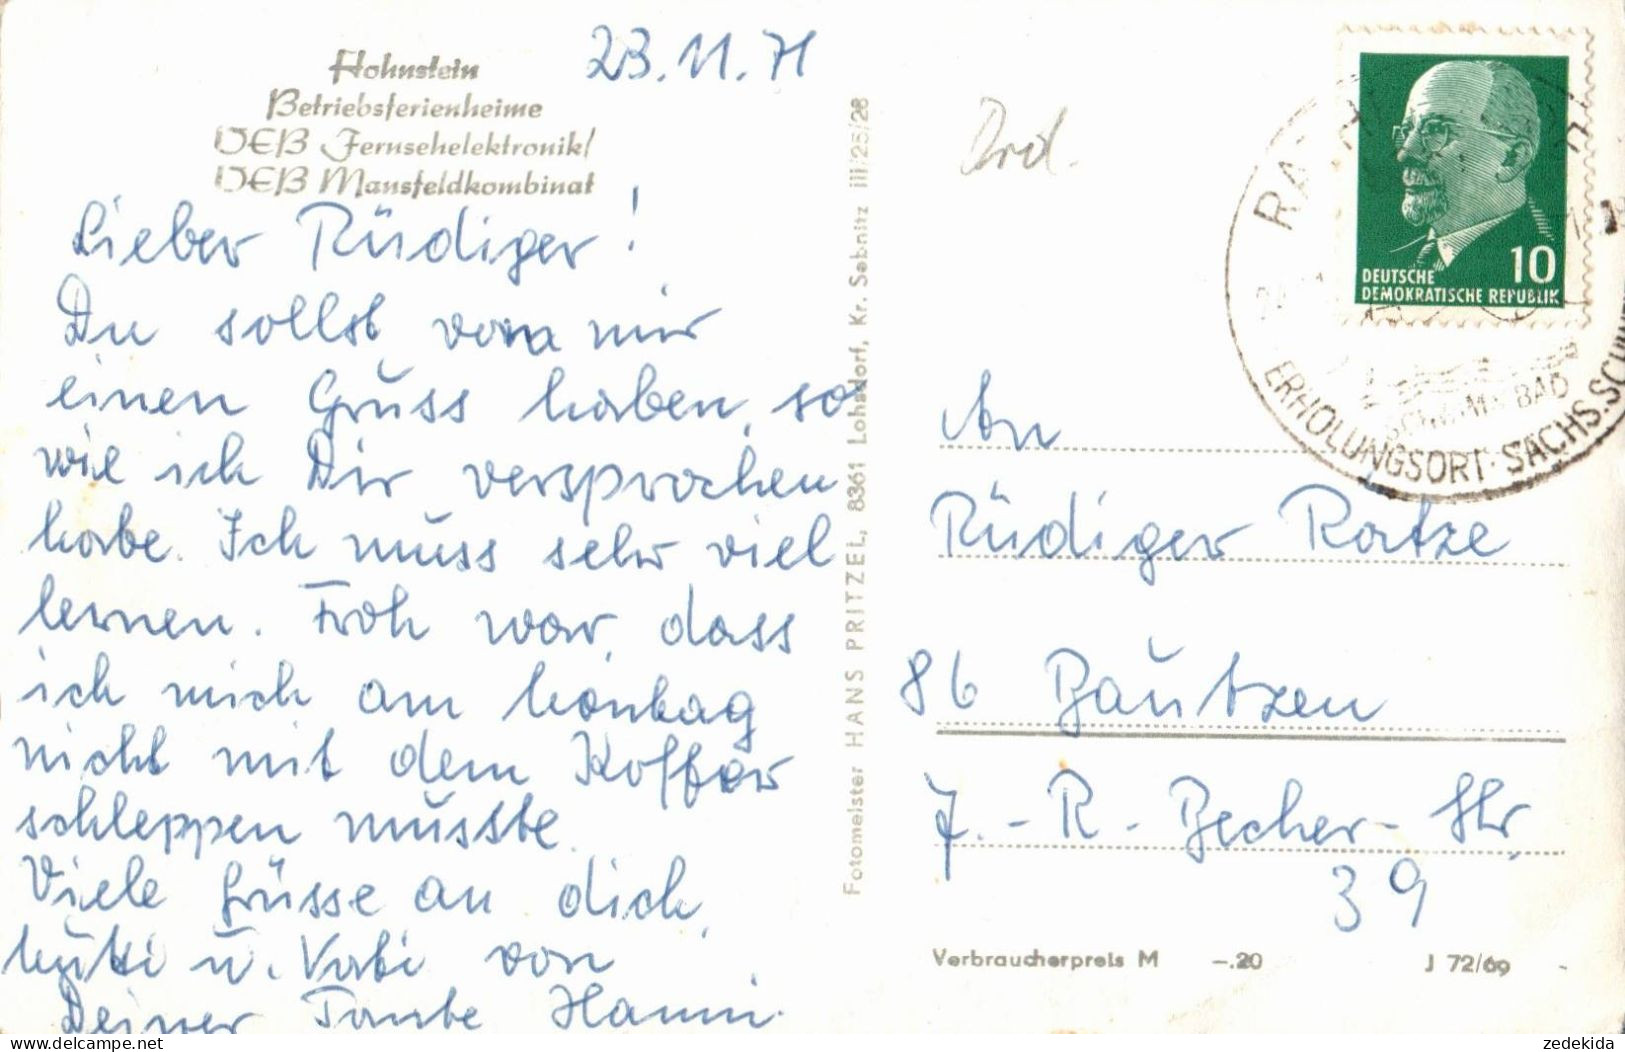 Hohnstein
Betriebsferienheime
VEB Fernsehelektronik/
VEB Mansfeldkombinat
23.11.71
Lieber Rüdiger!
Du sollst von mir
einen Gruss haben, so
wie ich Dir versprochen
habe. Ich muss sehr viel
lernen. Froh war, dass
ich mich am Montag
nicht mit dem Koffer
schleppen musste.
Viele Grüsse an dich,
Mutti u. Vati von
Deiner Tante Hanni.
Fotomeister HANS PRITZEL, 8361 Lohsdorf, Kr. Sebnitz III/25/28
Drd.
DEUTSCHE
DEMOKRATISCHE REPUBLIK
10
ERHOLUNGSORT · SÄCHS. SCHWEIZ
An
Rüdiger Ratze
86 Bautzen
J.-R.-Becher-Str.
39
Verbraucherpreis M -.20
J 72/69
zedekida